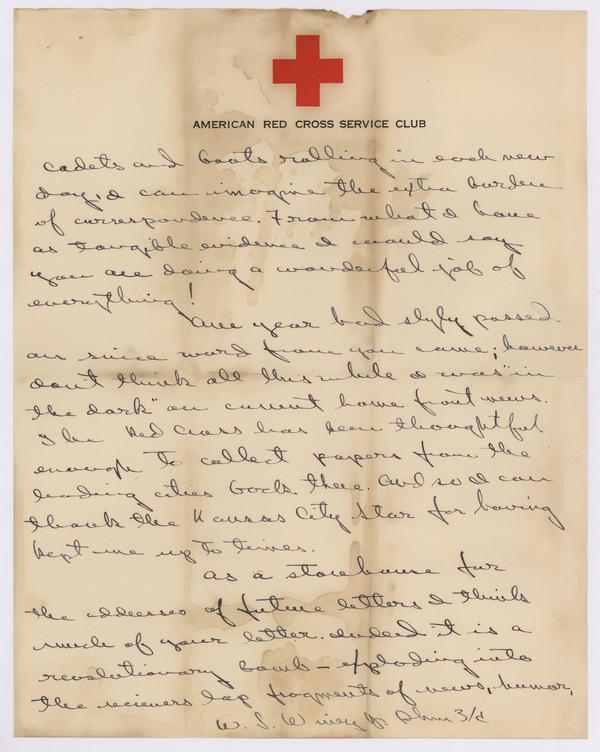 AMERICAN RED CROSS SERVICE CLUB
cadets and boots rolling in each new
day, I can imagine the extra burden
of correspondence. From what I have
as tangible evidence I would say
you are doing a wonderful job of
everything!
One year had slyly passed
on since word from you came; however
don't think all this while I was "in
the dark" on current home front news.
The Red Cross has been thoughtful
enough to collect papers from the
leading cities back there. And so I can
thank the Kansas City Star for having
kept me up to times.
As a storehouse for
the addresses of future letters I think
much of your letter. Indeed it is a
revolutionary bomb – exploding into
the recievers lap fragments of news, humor,
W. S. Jr. 3/c